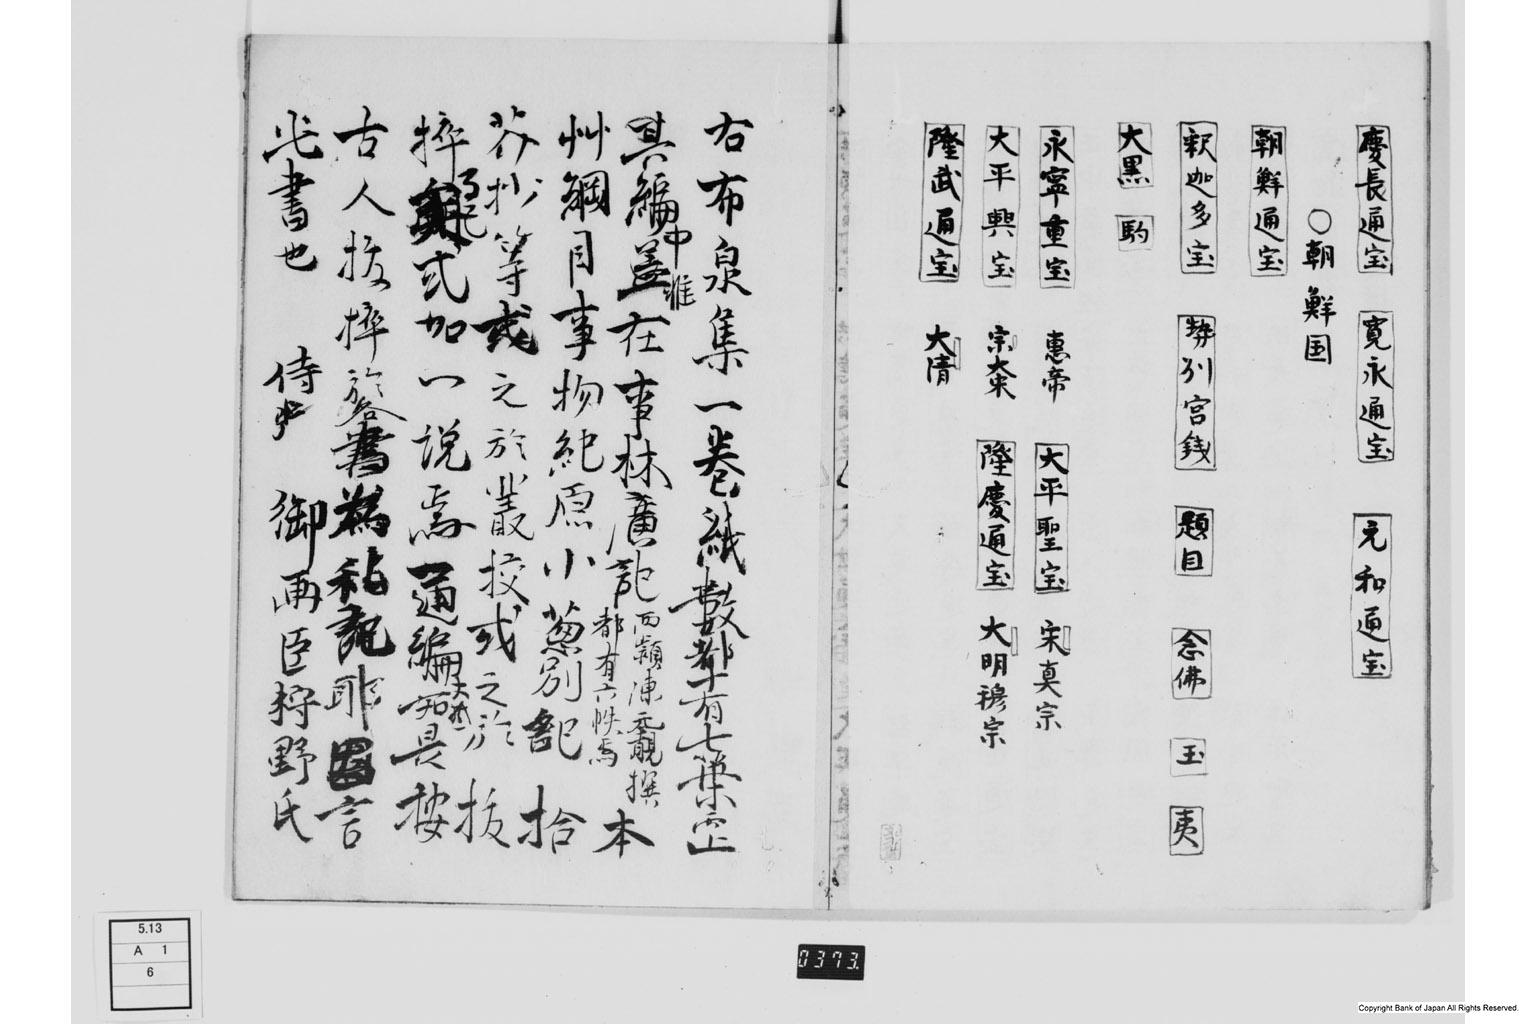 慶長通宝 寛永通宝 元和通宝
○朝鮮国
朝鮮通宝
釈迦多宝 勢州宮銭 題目 念佛 玉 夷
大黒 駒
永寧重宝 恵帝 大平聖宝 宋真宗
大平興宝 隆慶通宝 大明穆宗
隆武通宝 大清
右布泉集一巻紙数都十有七葉
其編中蓋在事林廣記 西穎陳元靚撰 都有六帙焉 本
艸綱目事物紀原小葱別記拾
芥抄等或之於叢挍或之於抜
挿 或加一説焉通編 具按
古人抜挿於各書為私記耶
此書也 侍 御画臣狩野氏
5.13
A 1
6
0373.
Copyright Bank of Japan All Rights Reserved.